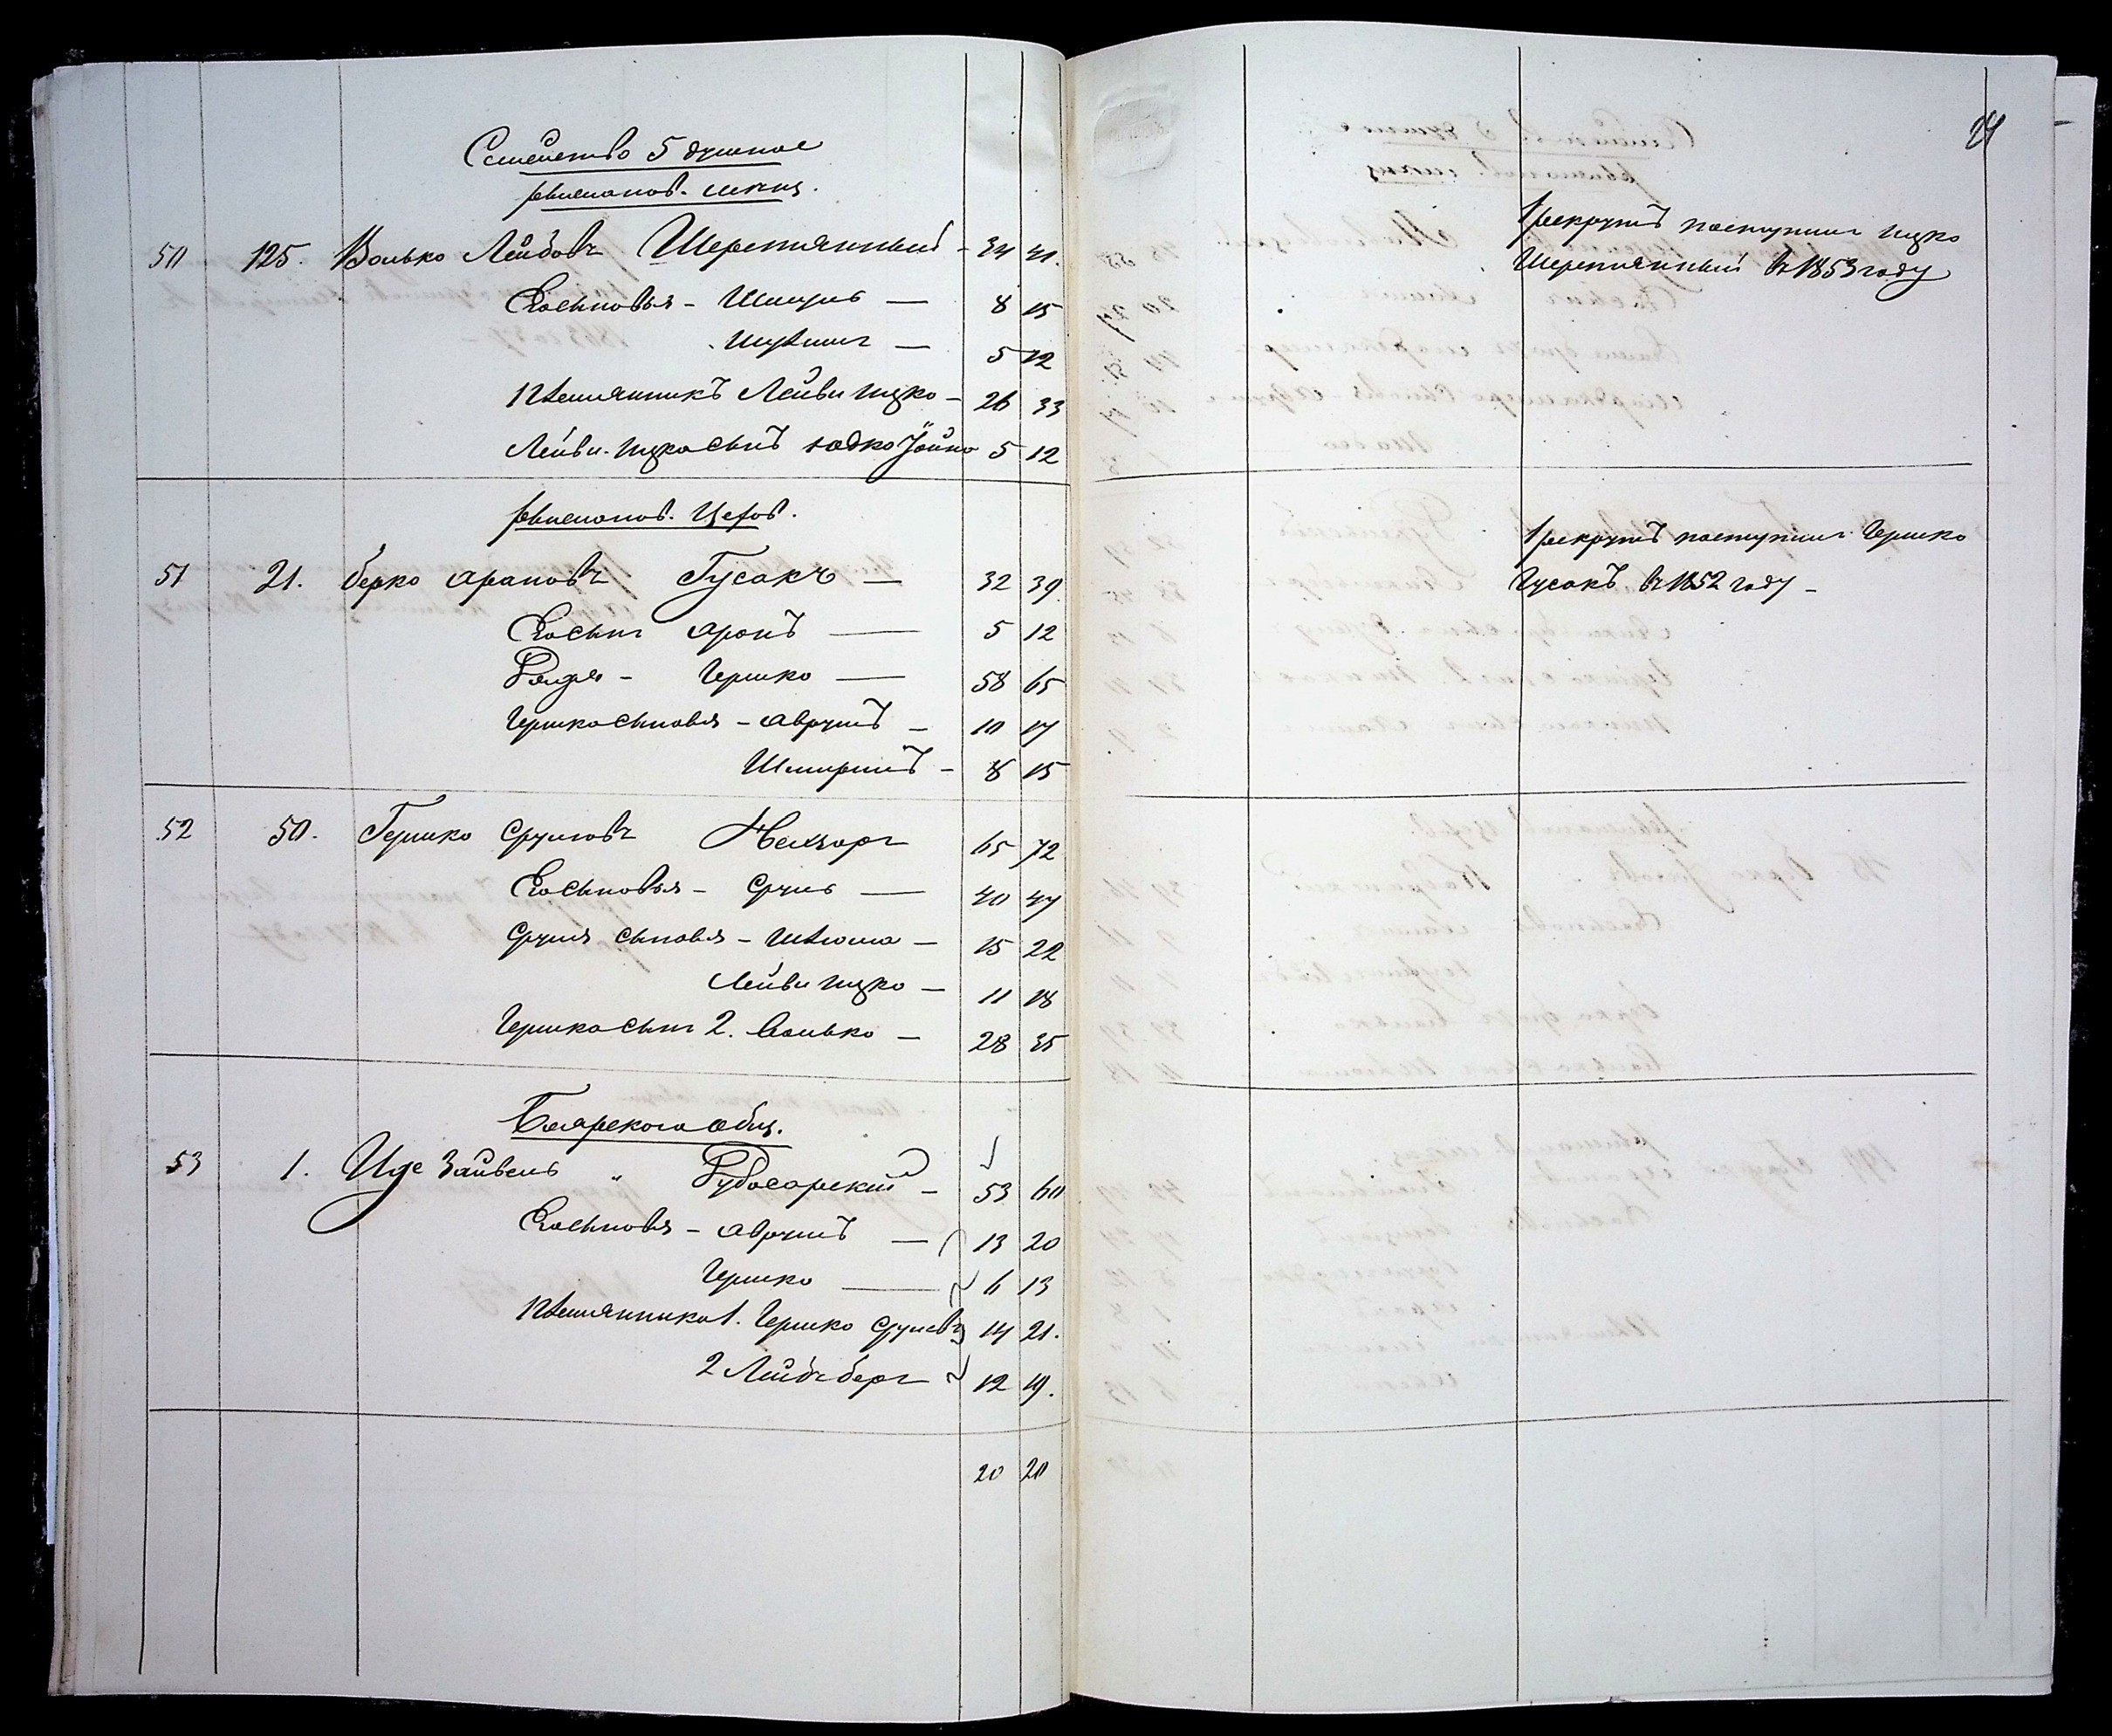 Семейство 5 душное
50 125. Волько Лейбовъ Шерепианный - 34 41.
Его сыновья - Шмуль — 8 15
5 12
Племянникъ Лейви Ицко - 26 33
Лейви-Ицка сынъ Юдко Іойно 5 12
Цехов.
51 21. Берко Ароновъ Гусакъ — 32 39
Его сынъ Аронъ — 5 12
Дядя - Гершко — 58 65
Гершка сыновья - Аврумъ - 10 17
8 15
52 50. Гершко Сруловъ 65 72
Его сыновья - Сруль — 40 47
Сруля сыновья - Шлiома - 15 22
Лейви Ицко — 11 18
Гершка сынъ 2. Волько — 28 35
Боярского общ.
53 1. Ицс Зайвель " Дубосарский - 53 60
Его сыновья - Аврумъ — 13 20
Гершко — 6 13
Племянники 1. Гершко Срулевъ 14 21.
2 Лейбъ Беръ 12 19.
20 20
24
1 рекрутъ поступилъ Ицко
Шерепианный въ 1853 году
1 рекрутъ поступилъ Гершко
Гусакъ въ 1852 году -